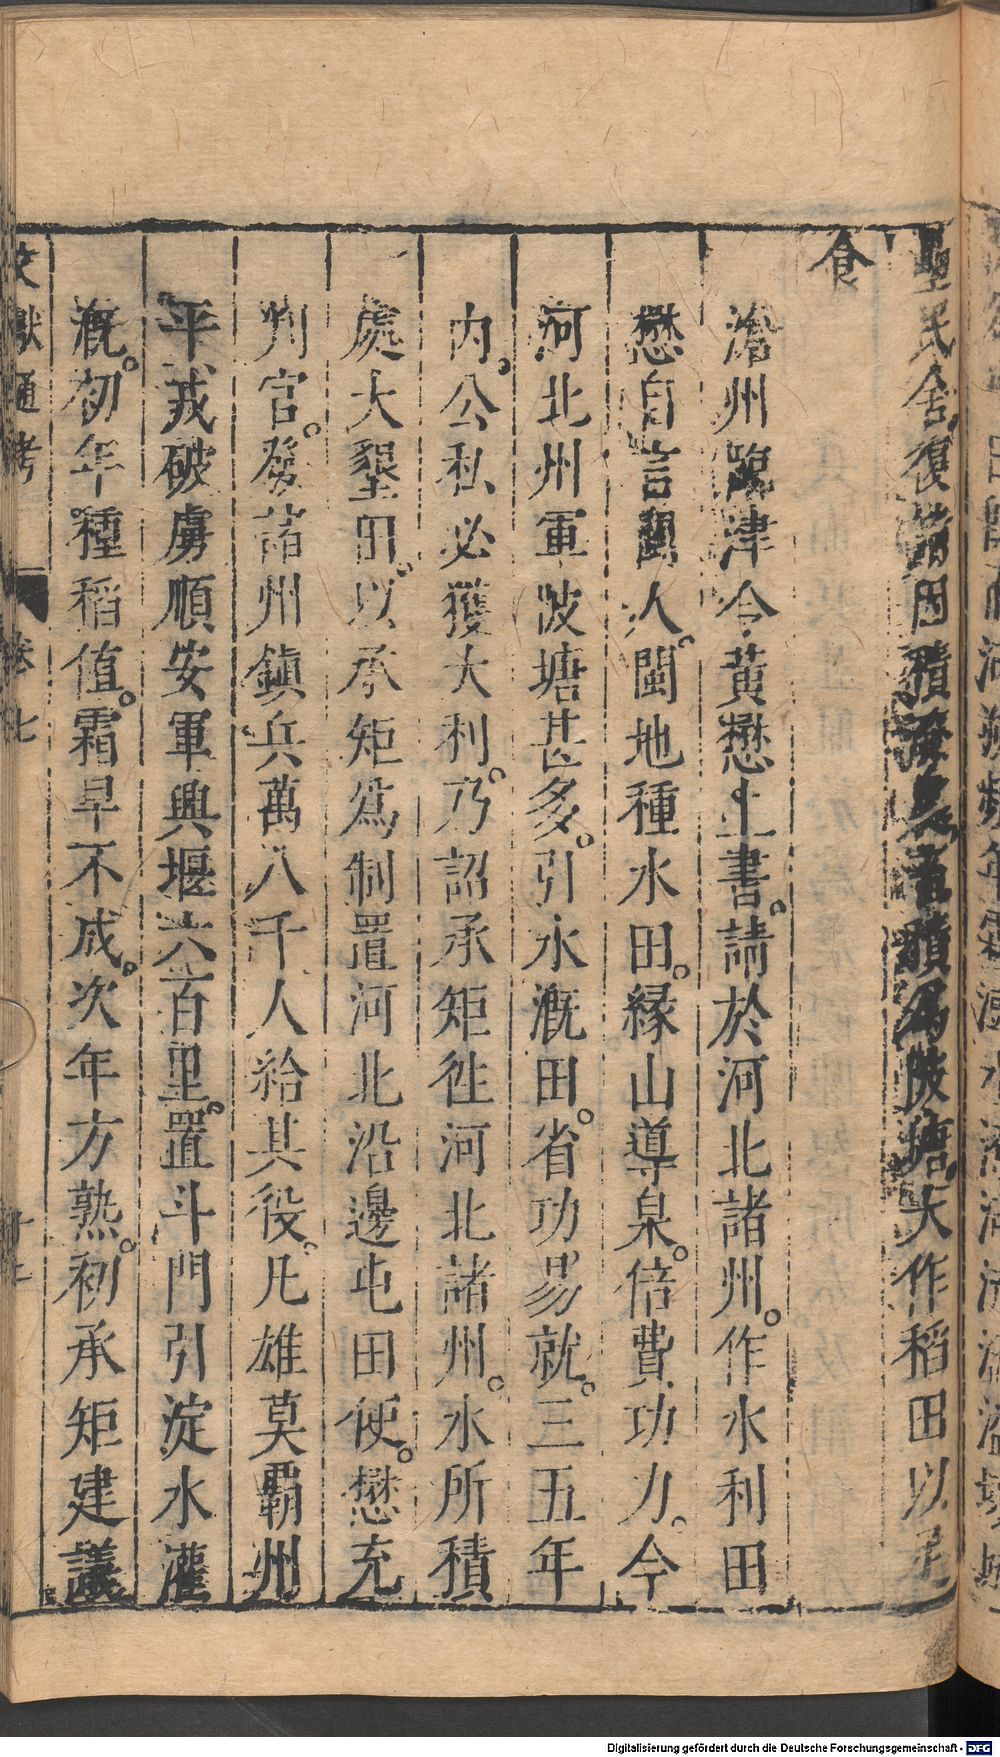 壂民舍復請因積潦蓄積為陂塘大作稻田以足
食
滄州臨津令黃懋上書。請於河北諸州。作水利田
懋自言閩人。閩地種水田。緣山導泉。倍費功力。今
河北州軍陂塘甚多。引水溉田。省功易就。三五年
內。公私必獲大利。乃詔承矩徃河北諸州。水所積
處大墾田。以承矩爲制置河北沿邊屯田使。懋充
判官。發諸州鎮兵萬八千人給其役。凡雄莫霸州
平戎破虜順安軍興堰六百里。置斗門引淀水灌
溉。初年種稻值。霜早不成。次年方熟。初承矩建議
文獻通考 卷七
Digitalisierung gefördert durch die Deutsche Forschungsgemeinschaft - DFG